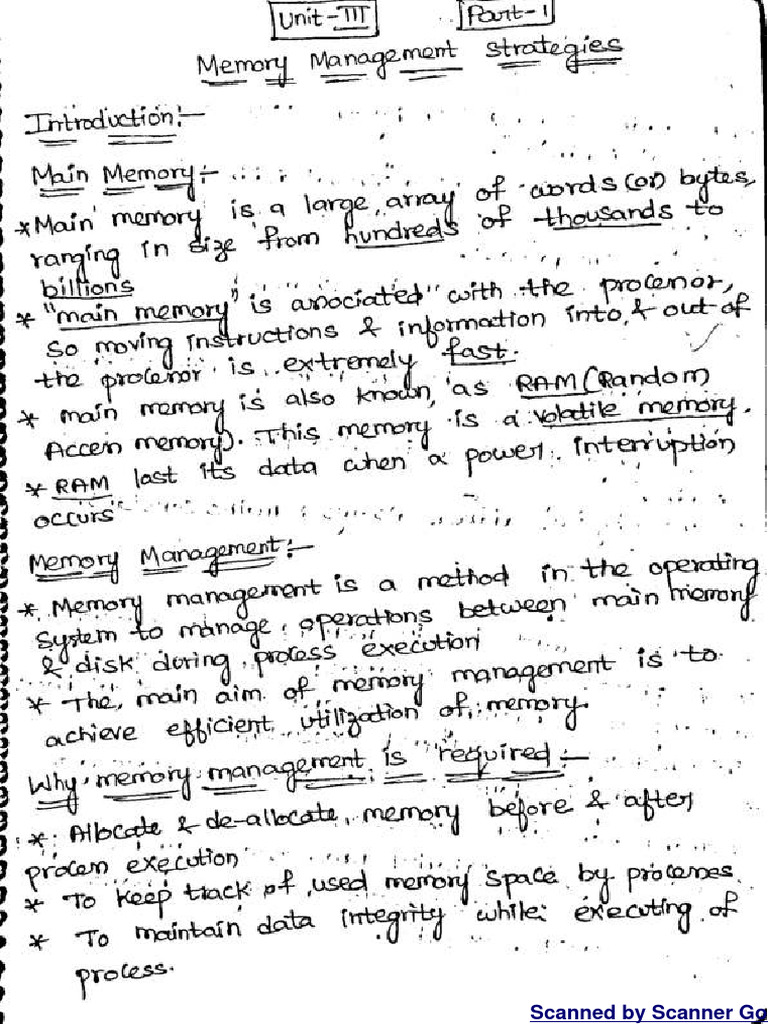 Unit-III Part-1
Memory Management Strategies
Introduction:-
Main Memory:-
* Main memory is a large array of words (or) bytes,
ranging in size from hundreds of thousands to
billions
* "main memory" is associated with the processor,
so moving instructions & information into & out of
the processor is extremely fast.
* main memory is also known as RAM (Random
Access memory). This memory is a volatile memory.
* RAM last its data when a power interruption
occurs
Memory Management:-
* Memory management is a method in the operating
System to manage operations between main memory
& disk during process execution
* The main aim of memory management is to
achieve efficient utilization of memory.
Why memory management is required:-
* Allocate & de-allocate memory before & after
process execution
* To keep track of used memory space by processes.
* To maintain data integrity while executing of
process.
Scanned by Scanner Go